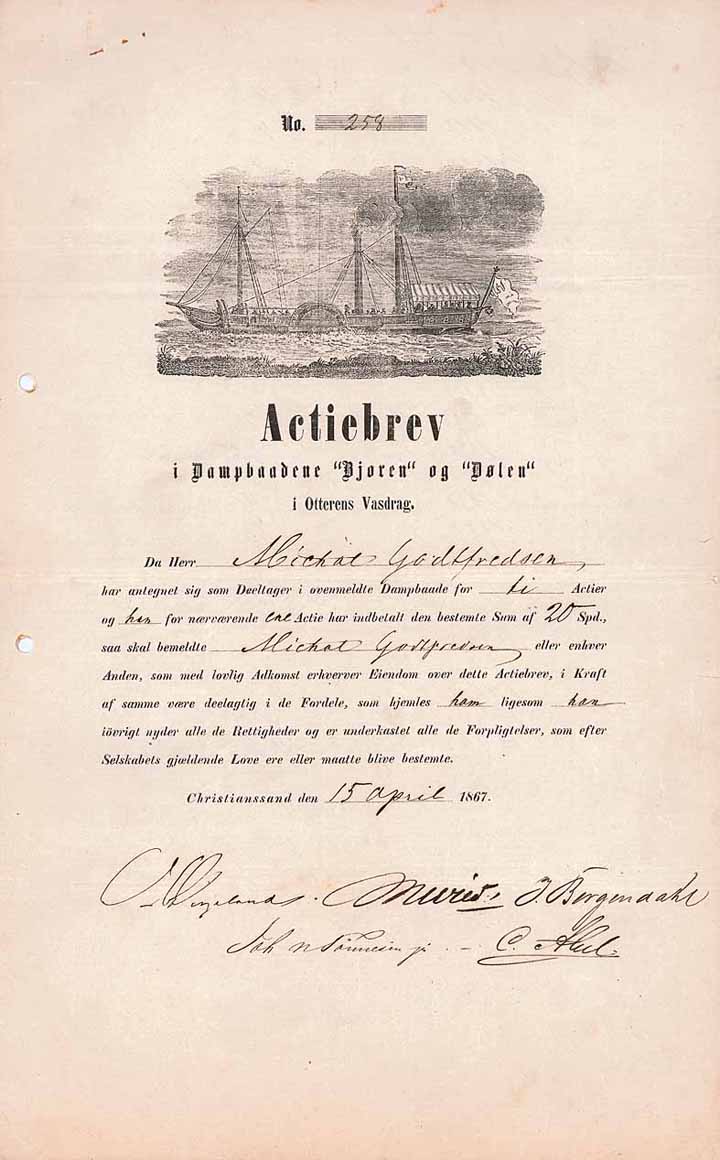 No. 258
Actiebrev
i Dampbaadene "Bjoren" og "Dølen"
i Otterens Vasdrag.
Da Herr Michal Godtfredsen,
har antegnet sig som Deeltager i ovenmeldte Dampbaade for ti Actier
og han for nærværende ene Actie har indbetalt den bestemte Sum af 20 Spd.,
saa skal bemeldte Michal Godtfredsen, eller enhver
Anden, som med lovlig Adkomst erhverver Eiendom over dette Actiebrev, i Kraft
af samme være deelagtig i de Fordele, som hjemles ham ligesom han
iövrigt nyder alle de Rettigheder og er underkastet alle de Forpligtelser, som efter
Selskabets gjældende Love ere eller maatte blive bestemte.
Christianssand den 15 April 1867.
J. Bergendahl
C.